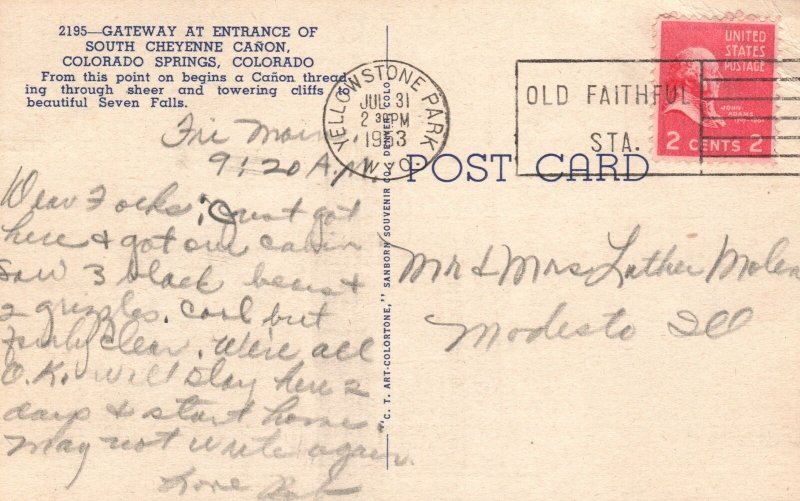 2195—GATEWAY AT ENTRANCE OF
SOUTH CHEYENNE CAÑON,
COLORADO SPRINGS, COLORADO
From this point on begins a Cañon thread-
ing through sheer and towering cliffs to
beautiful Seven Falls.
Fri Morn
9:20 A.M.
Dear Folks; Just got
here & got our cabin
Saw 3 black bears &
2 grizzles. Cool but
fairly clear. We're all
O.K. Will stay here 2
days & start home.
May not write again.
Love
YELLOWSTONE PARK
JUL 31
2 30 PM
1953
WYO.
OLD FAITHFUL
STA.
UNITED
STATES
POSTAGE
JOHN
ADAMS
2 CENTS 2
POST CARD
"C. T. ART-COLORTONE," SANBORN SOUVENIR CO., DENVER, COLO.
Mr & Mrs Luther
Modesto Ill